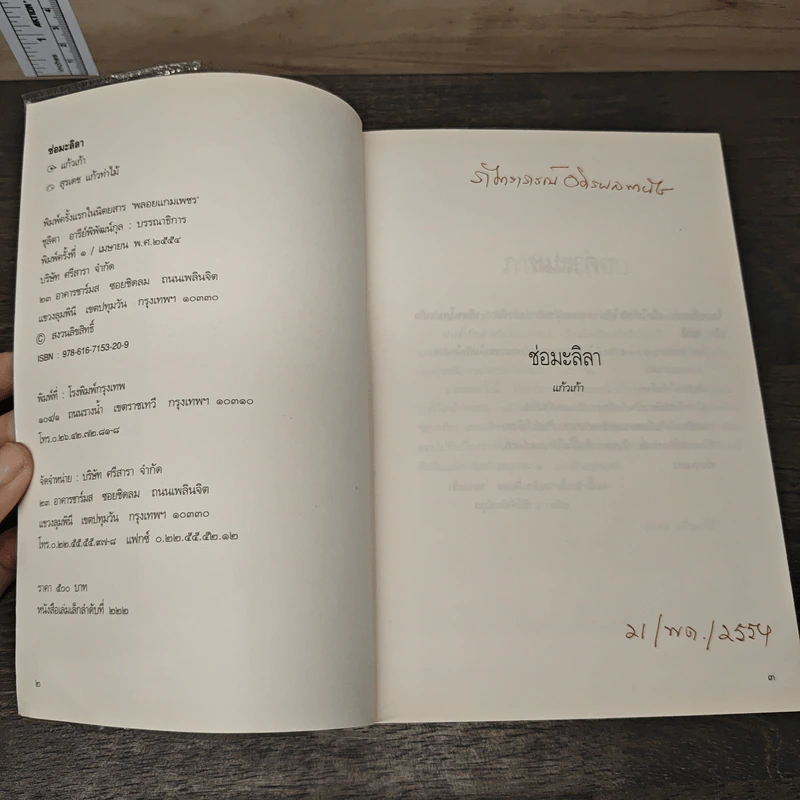 ช่อมะลิลา
แก้วเก้า
สุรเดช แก้วท่าไม้
พิมพ์ครั้งแรกในนิตยสาร "พลอยแกมเพชร"
ชุลิตา อารีย์พิพัฒน์กุล : บรรณาธิการ
พิมพ์ครั้งที่ ๑ / เมษายน พ.ศ.๒๕๕๔
บริษัท ศรีสารา จำกัด
๒๓ อาคารชาร์มส ซอยชิดลม ถนนเพลินจิต
แขวงลุมพินี เขตปทุมวัน กรุงเทพฯ ๑๐๓๓๐
© สงวนลิขสิทธิ์
ISBN : 978-616-7153-20-9
พิมพ์ที่ : โรงพิมพ์กรุงเทพ
๑๐๔/๑ ถนนรางน้ำ เขตราชเทวี กรุงเทพฯ ๑๐๓๑๐
โทร.๐.๒๖.๔๒.๗๒.๘๑-๘
จัดจำหน่าย : บริษัท ศรีสารา จำกัด
๒๓ อาคารชาร์มส ซอยชิดลม ถนนเพลินจิต
แขวงลุมพินี เขตปทุมวัน กรุงเทพฯ ๑๐๓๓๐
โทร.๐.๒๒.๕๕.๕๕.๙๗-๘ แฟกซ์ ๐.๒๒.๕๕.๕๒.๑๒
ราคา ๕๐๐ บาท
หนังสือเล่มเล็กลำดับที่ ๒๒๒
๒
ช่อมะลิลา
แก้วเก้า
๒๑/พค./๒๕๕๔
๓